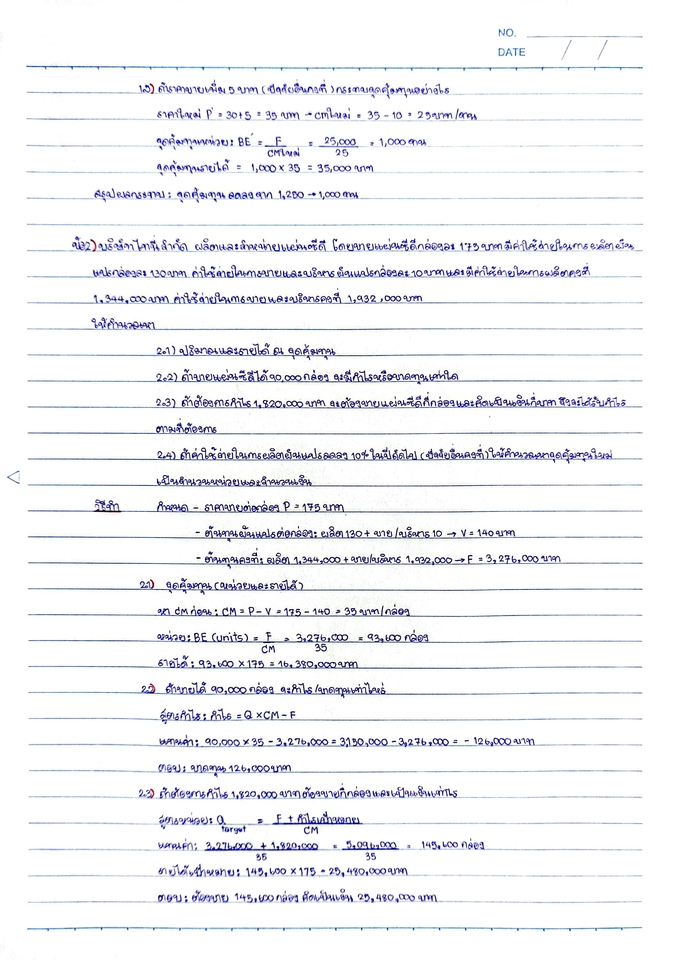 NO.
DATE / /
1.5) ถ้าราคาขายเพิ่ม 5 บาท (ปัจจัยอื่นคงที่) กระทบจุดคุ้มทุนอย่างไร
ราคาใหม่ P' = 30+5 = 35 บาท → CMใหม่ = 35 - 10 = 25 บาท/จาน
จุดคุ้มทุนหน่วย: BE' = F/CMใหม่ = 25,000/25 = 1,000 จาน
จุดคุ้มทุนรายได้ = 1,000 x 35 = 35,000 บาท
สรุปผลกระทบ: จุดคุ้มทุนลดลงจาก 1,250 → 1,000 จาน
ข้อ2) บริษัทไททั่นจำกัด ผลิตและจำหน่ายแผ่นซีดี โดยขายแผ่นซีดีกล่องละ 175 บาท มีค่าใช้จ่ายในการผลิตผัน
แปรกล่องละ 130 บาท ค่าใช้จ่ายในการขายและบริหารผันแปรกล่องละ 10 บาทและมีค่าใช้จ่ายในการผลิตคงที่
1,344,000 บาท ค่าใช้จ่ายในการขายและบริหารคงที่ 1,932,000 บาท
ให้คำนวณหา
2.1) ปริมาณและรายได้ ณ จุดคุ้มทุน
2.2) ถ้าขายแผ่นซีดีได้ 90,000 กล่อง จะมีกำไรหรือขาดทุนเท่าใด
2.3) ถ้าต้องการกำไร 1,820,000 บาท จะต้องขายแผ่นซีดีกี่กล่องและคิดเป็นเงินกี่บาท จึงจะได้รับกำไร
ตามที่ต้องการ
2.4) ถ้าค่าใช้จ่ายในการผลิตผันแปรลดลง 10% ในปีถัดไป (ปัจจัยอื่นคงที่) ให้คำนวณหาจุดคุ้มทุนใหม่
เป็นจำนวนหน่วยและจำนวนเงิน
วิธีทำ กำหนด - ราคาขายต่อกล่อง P = 175 บาท
- ต้นทุนผันแปรต่อกล่อง: ผลิต 130 + ขาย/บริหาร 10 → V = 140 บาท
- ต้นทุนคงที่: ผลิต 1,344,000 + ขาย/บริหาร 1,932,000 → F = 3,276,000 บาท
2.1) จุดคุ้มทุน (หน่วยและรายได้)
หา CM ก่อน: CM = P - V = 175 - 140 = 35 บาท/กล่อง
หน่วย: BE (units) = F/CM = 3,276,000/35 = 93,600 กล่อง
รายได้: 93,600 x 175 = 16,380,000 บาท
2.2) ถ้าขายได้ 90,000 กล่อง จะกำไร/ขาดทุนเท่าไหร่
สูตรกำไร: กำไร = Q x CM - F
แทนค่า: 90,000 x 35 - 3,276,000 = 3,150,000 - 3,276,000 = - 126,000 บาท
ตอบ: ขาดทุน 126,000 บาท
2.3) ถ้าต้องการกำไร 1,820,000 บาท ต้องขายกี่กล่องและเป็นเงินเท่าไร
สูตรหน่วย: Q target = F + กำไรเป้าหมาย/CM
แทนค่า: 3,276,000 + 1,820,000/35 = 5,096,000/35 = 145,600 กล่อง
รายได้เป้าหมาย: 145,600 x 175 = 25,480,000 บาท
ตอบ: ต้องขาย 145,600 กล่อง คิดเป็นเงิน 25,480,000 บาท